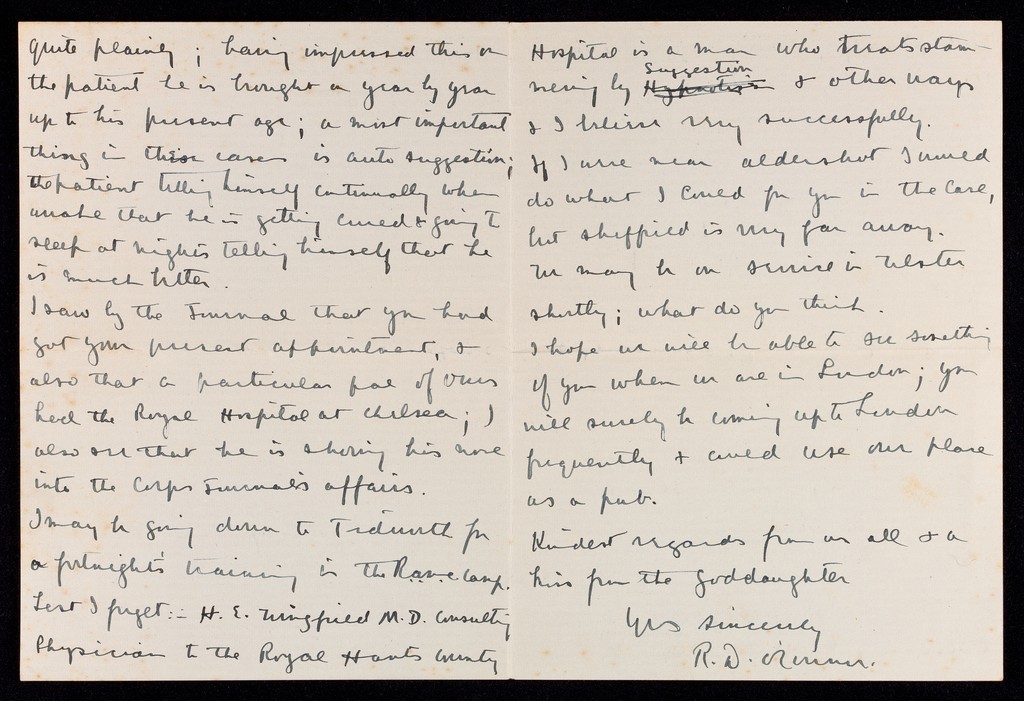 quite plainly; having impressed this on
the patient he is brought on year by year
up to his present age; a most important
thing in these cases is auto suggestion;
the patient telling himself continually when
awake that he is getting cured & going to
sleep at nights telling himself that he
is much better.
I saw by the Journal that you had
got your present appointment, &
also that a particular pal of ours
had the Royal Hospital at Chelsea; I
also see that he is shoving his nose
into the Corps Journal's affairs.
I may be going down to Tidworth for
a fortnight's training in the R.a.m.c camp.
Lest I forget:- H. E. Wingfield M.D. Consulting
Physician to the Royal Hants County
Hospital is a man who treats stam-
mering by Hypnotism Suggestion & other ways
& I believe very successfully.
If I were near aldershot I would
do what I could for you in the case,
but sheffield is very far away.
We may be on service in Ulster
shortly; what do you think.
I hope we will be able to see something
of you when we are in London; you
will surely be coming up to London
frequently & could use our place
as a pub.
Kindest regards from us all & a
kiss from the goddaughter
Yrs sincerely
R. D. O'Connor.